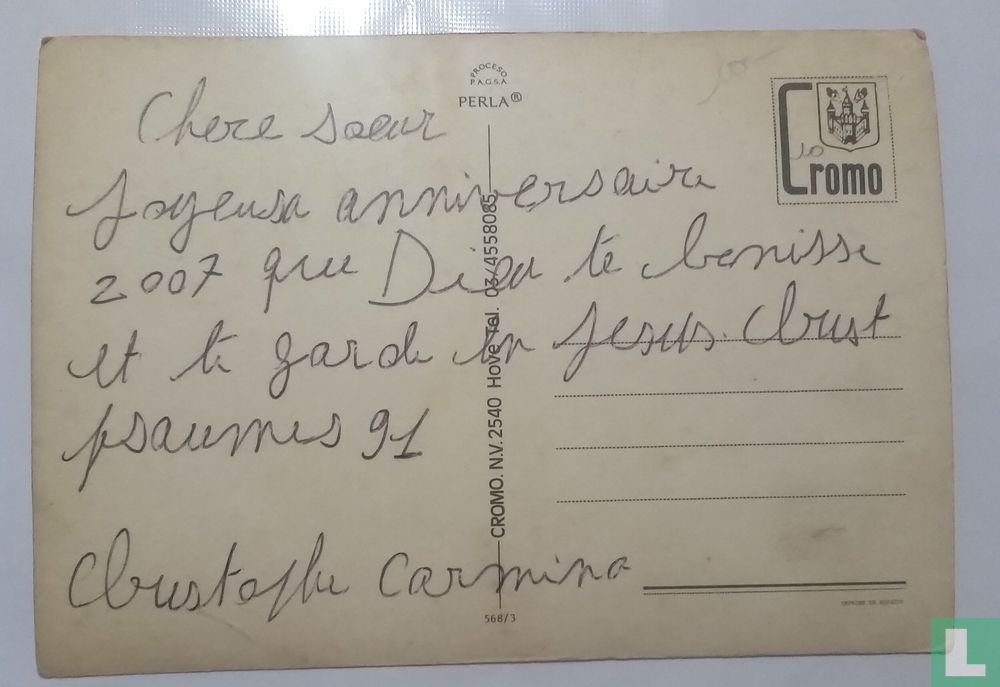 PROCESO
P.A.G.S.A.
PERLA®
Cromo
10
Chere soeur
Joyeuse anniversaire
2007 que Dieu te benisse
et te garde en Jesus. Christ
psaumes 91
Christophe Carmina
CROMO. N.V. 2540 Hove Tel. 03/4558085
568/3
L